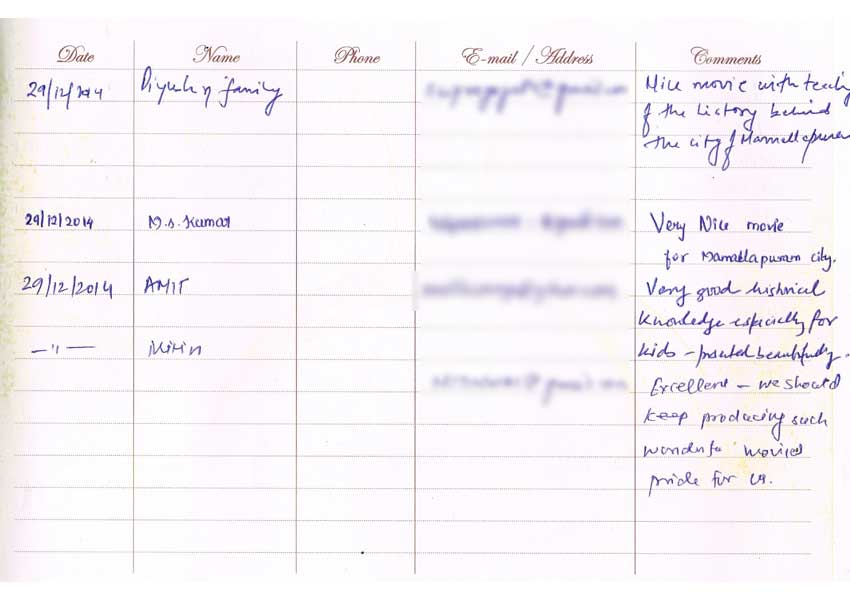 Date Name Phone E-mail / Address Comments
29/12/2014 Piyush & family Nice movie with
of the history behind
the city of Mamallapuram
29/12/2014 M.S. Kumar Very Nice movie
for Mamallapuram city.
29/12/2014 AMIT Very good historical
knowledge especially for
—"— Nitin kids – beautifully.
Excellent – we should
keep producing such
movies
pride for us.